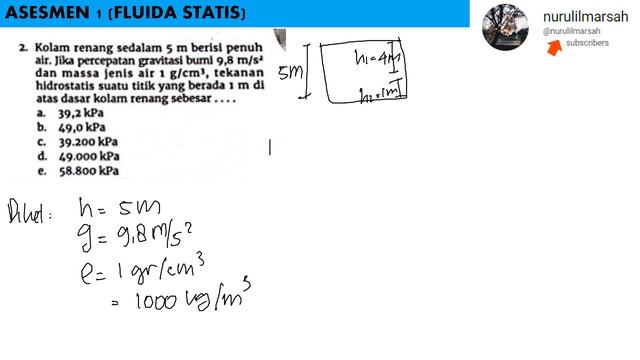 ASESMEN 1 (FLUIDA STATIS)
nurulilmarsah
@nurulilmarsah
subscribers
2. Kolam renang sedalam 5 m berisi penuh
air. Jika percepatan gravitasi bumi 9,8 m/s²
dan massa jenis air 1 g/cm³, tekanan
hidrostatis suatu titik yang berada 1 m di
atas dasar kolam renang sebesar ....
a. 39,2 kPa
b. 49,0 kPa
c. 39.200 kPa
d. 49.000 kPa
e. 58.800 kPa
5M
h₁=4M
h₂=1M
Diket: h = 5M
g = 9,8 M/s²
ρ = 1 gr/cm³
= 1000 kg/m³